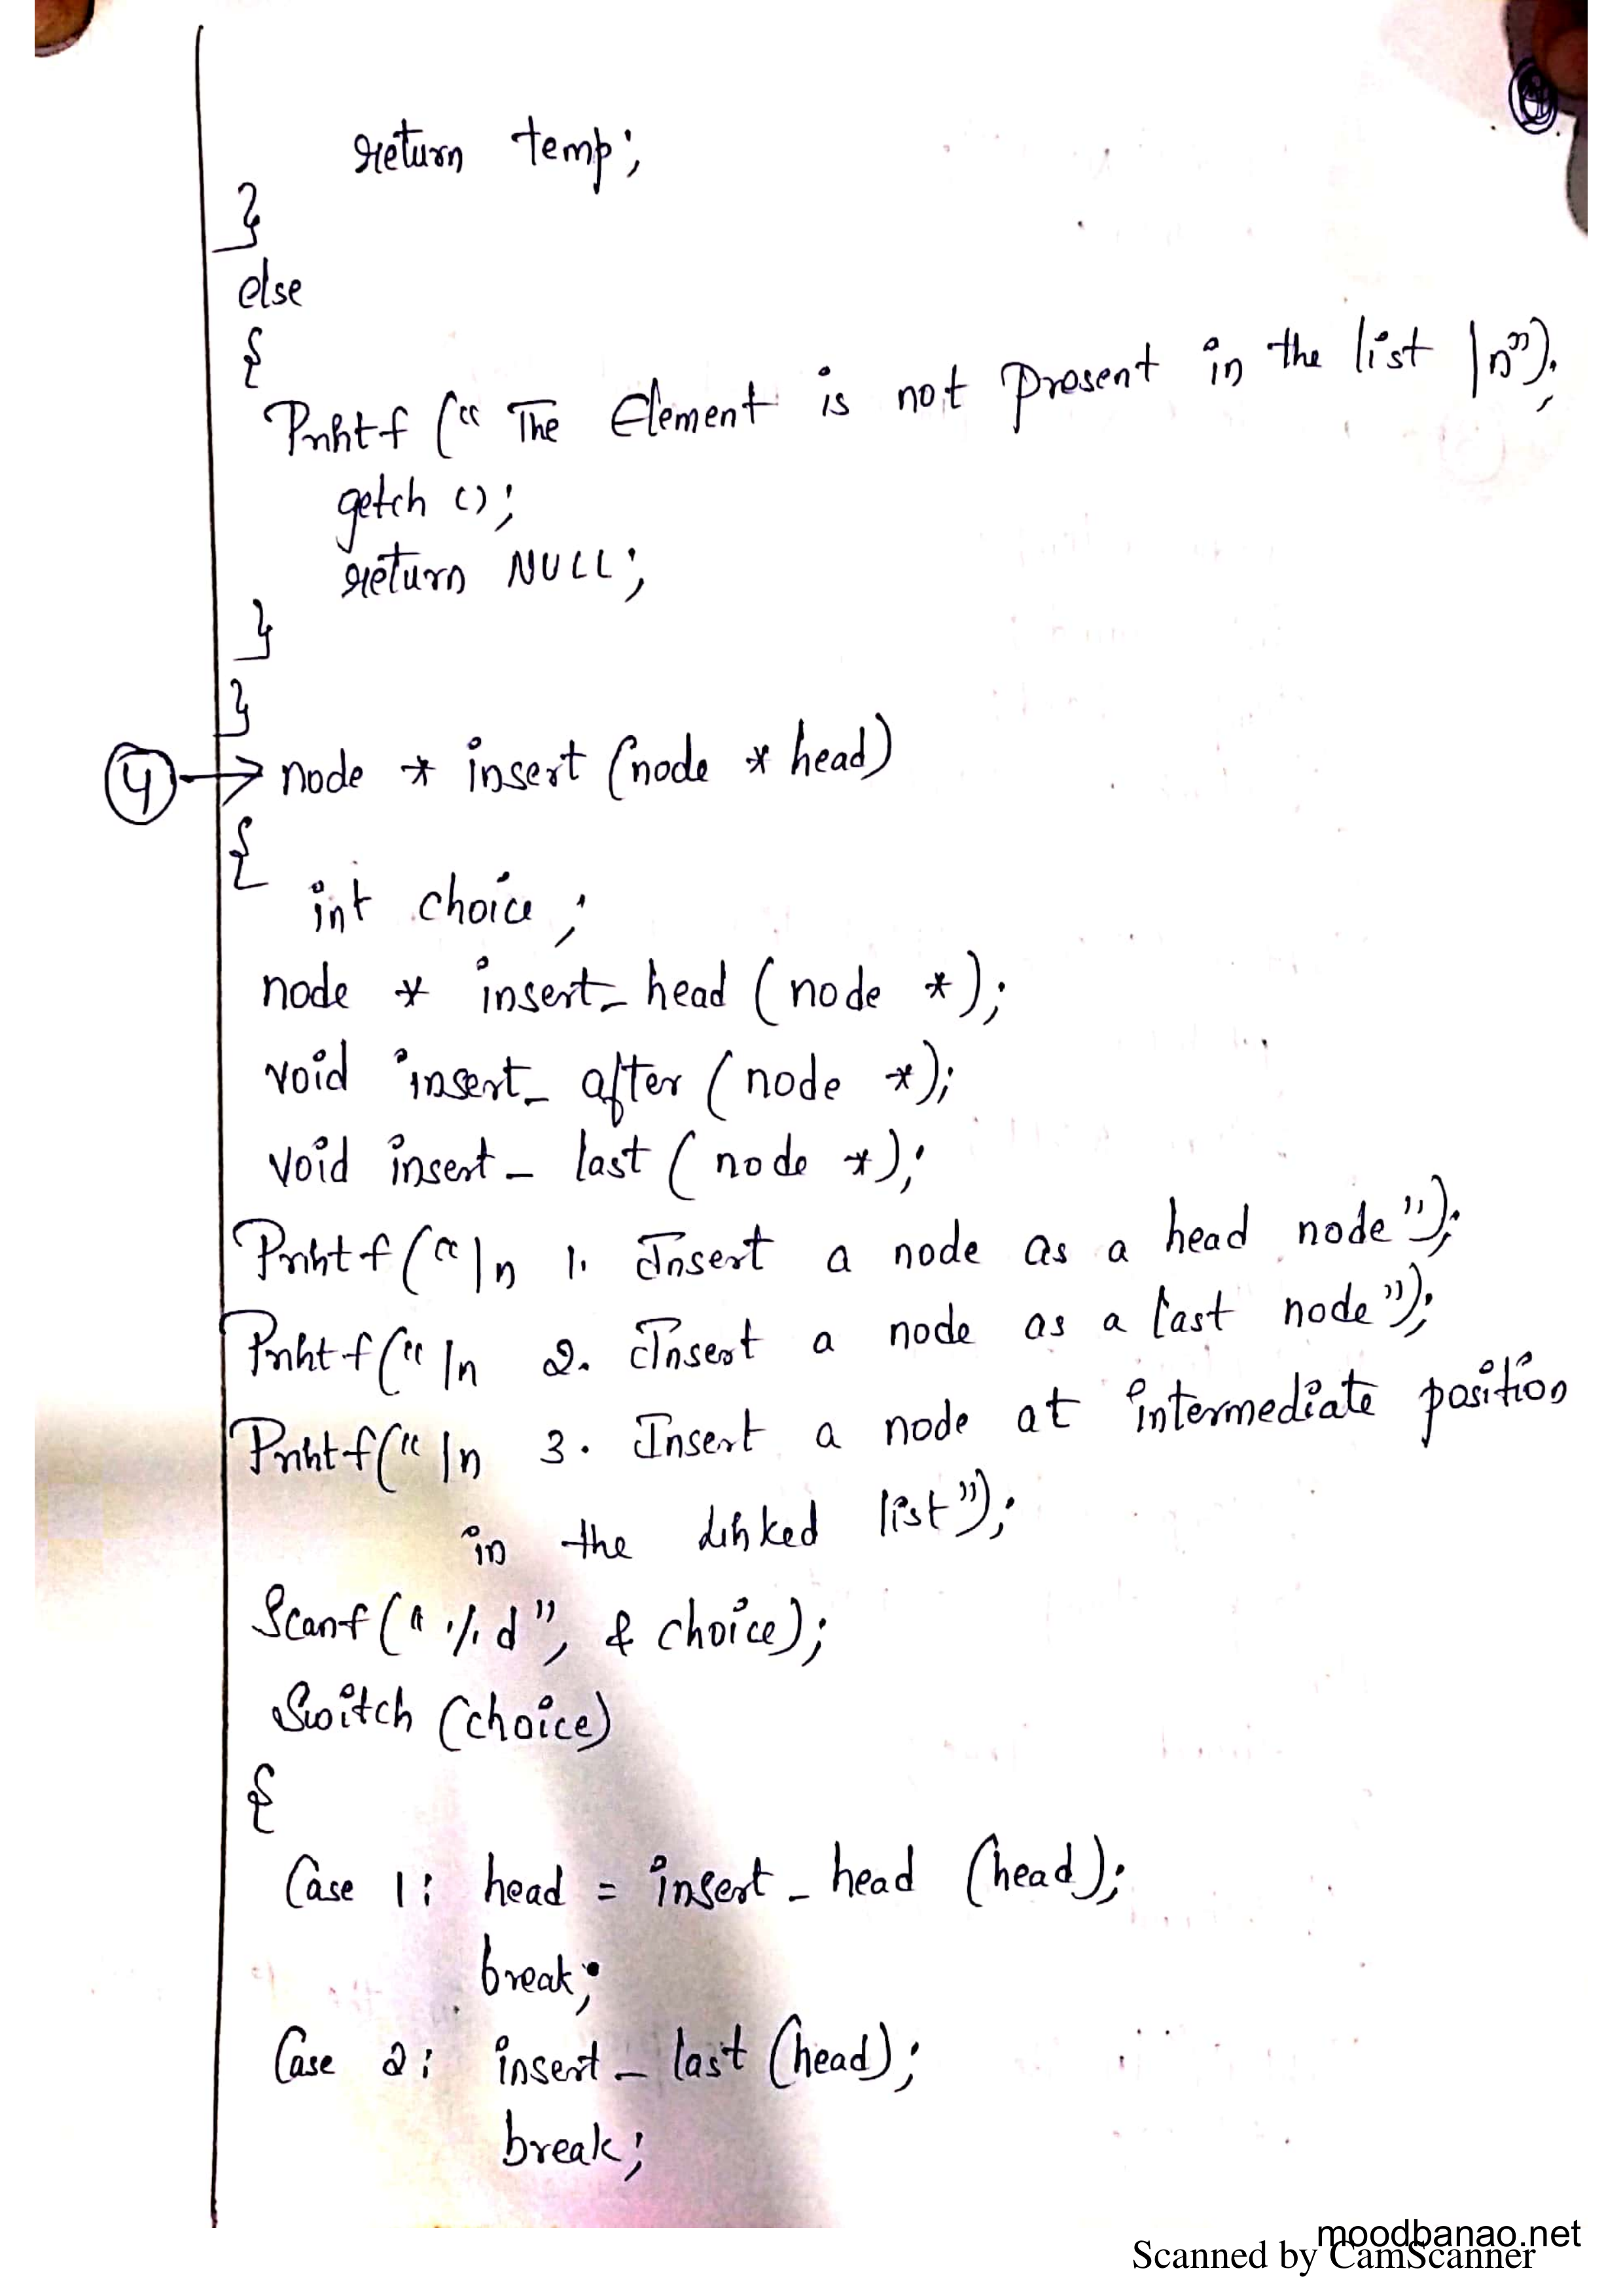 return temp;
}
else
{
Printf (" The Element is not present in the list \n");
getch ();
return NULL;
}
}
4 → node * insert (node * head)
{
int choice ;
node * insert_head (node *);
void insert_after (node *);
void insert_last (node *);
Printf("\n 1. Insert a node as a head node");
Printf("\n 2. Insert a node as a last node");
Printf("\n 3. Insert a node at intermediate position
in the Linked list");
Scanf("%d", & choice);
Switch (choice)
{
Case 1: head = insert_head (head);
break;
Case 2: insert_last (head);
break;
moodbanao.net
Scanned by CamScanner